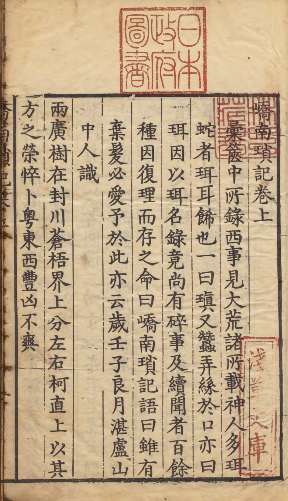 日本政府圖書
嶠南瑣記卷上
中所錄西事見大荒諸所載神人多珥
蛇者珥耳餙也一曰瑱又蠶弄絲於口亦曰
珥因以珥名錄竟尚有碎事及續聞者百餘
種因復理而存之命曰嶠南瑣記語曰雖有
棄髮必愛予於此亦云歲壬子良月湛盧山
中人識
兩廣樹在封川蒼梧界上分左右柯直上以其
方之榮悴卜粵東西豐凶不爽
淺草文庫